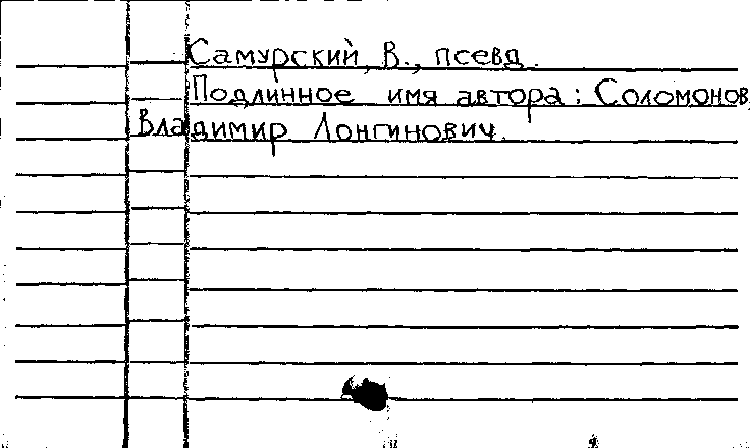 Самурский, В., псевд.
Подлинное имя автора: Соломонов,
Владимир Лонгинович.